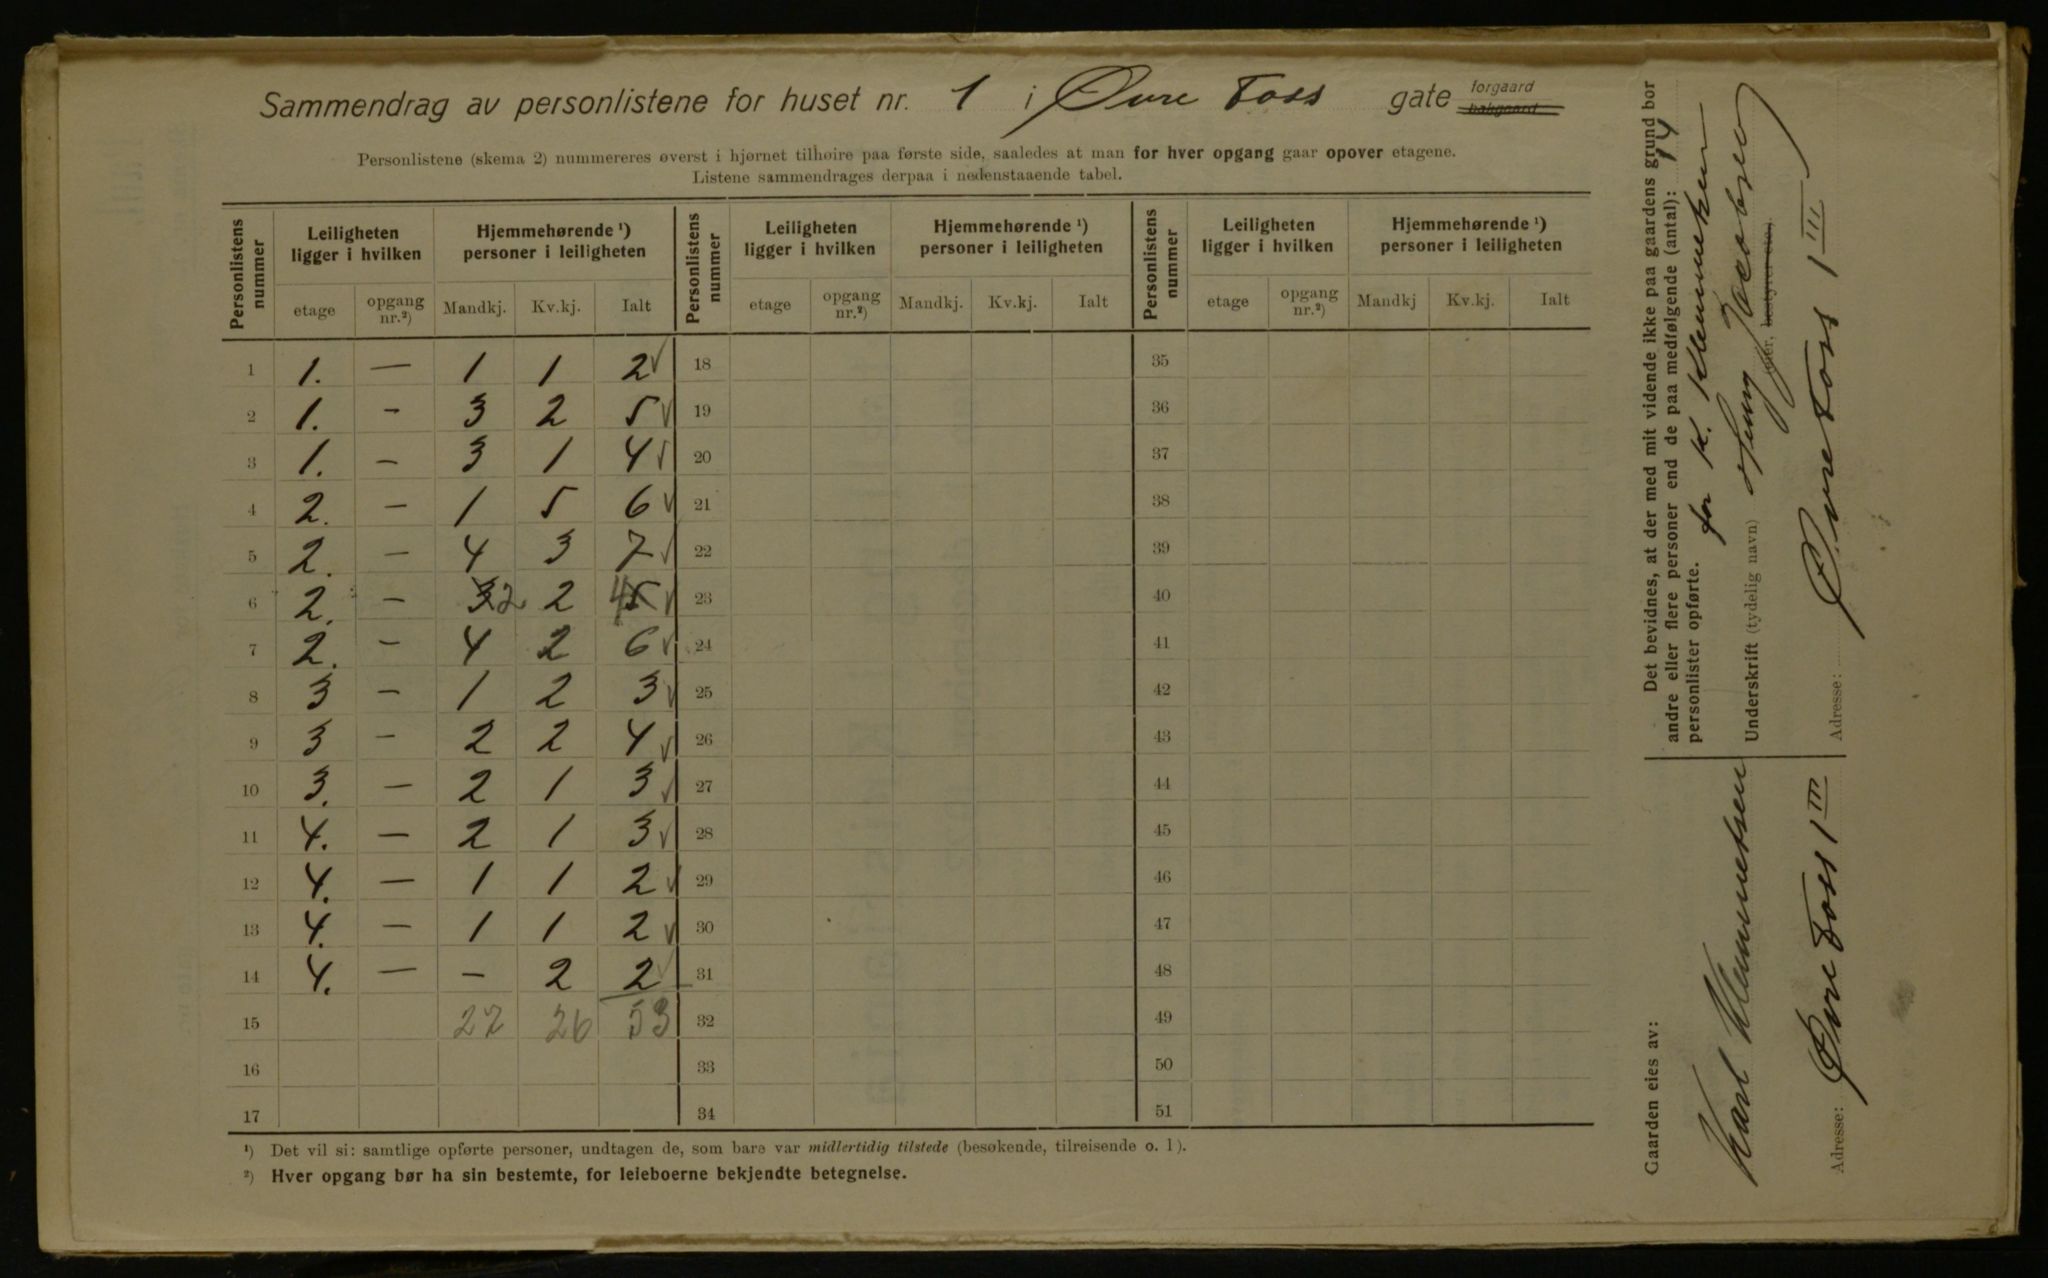 Sammendrag av personlistene for huset nr. 1 i Øvre Foss gate forgaard bakgaard
Personlistene (skema 2) nummereres øverst i hjørnet tilhøire paa første side, saaledes at man for hver opgang gaar opover etagene.
Listene sammendrages derpaa i nedenstaaende tabel.
Personlistens nummer | Leiligheten ligger i hvilken | Hjemmehørende ¹) personer i leiligheten | Personlistens nummer | Leiligheten ligger i hvilken | Hjemmehørende ¹) personer i leiligheten | Personlistens nummer | Leiligheten ligger i hvilken | Hjemmehørende ¹) personer i leiligheten
etage | opgang nr.²) | Mandkj. | Kv.kj. | Ialt | etage | opgang nr.²) | Mandkj. | Kv.kj. | Ialt | etage | opgang nr.²) | Mandkj | Kv.kj. | Ialt
1 | 1. | — | 1 | 1 | 2 ✓ | 18 | 35
2 | 1. | - | 3 | 2 | 5 ✓ | 19 | 36
3 | 1. | - | 3 | 1 | 4 ✓ | 20 | 37
4 | 2. | - | 1 | 5 | 6 ✓ | 21 | 38
5 | 2. | - | 4 | 3 | 7 ✓ | 22 | 39
6 | 2. | - | 3 2 | 2 | 4 5 ✓ | 23 | 40
7 | 2. | - | 4 | 2 | 6 ✓ | 24 | 41
8 | 3 | - | 1 | 2 | 3 ✓ | 25 | 42
9 | 3 | - | 2 | 2 | 4 ✓ | 26 | 43
10 | 3. | - | 2 | 1 | 3 ✓ | 27 | 44
11 | 4. | - | 2 | 1 | 3 ✓ | 28 | 45
12 | 4. | - | 1 | 1 | 2 ✓ | 29 | 46
13 | 4. | - | 1 | 1 | 2 ✓ | 30 | 47
14 | 4. | - | - | 2 | 2 ✓ | 31 | 48
15 | 27 | 26 | 53 | 32 | 49
16 | 33 | 50
17 | 34 | 51
¹) Det vil si: samtlige opførte personer, undtagen de, som bare var midlertidig tilstede (besøkende, tilreisende o. l).
²) Hver opgang bør ha sin bestemte, for leieboerne bekjendte betegnelse.
Det bevidnes, at der med mit vidende ikke paa gaardens grund bor
andre eller flere personer end de paa medfølgende (antal): 14
personlister opførte. for K. Klemmetsen
Underskrift (tydelig navn) Jacobsen
eier, bestyrer etc.
Adresse: Øvre Foss 1 III
Gaarden eies av:
Karl Klemmetsen
Adresse: Øvre Foss 1 III